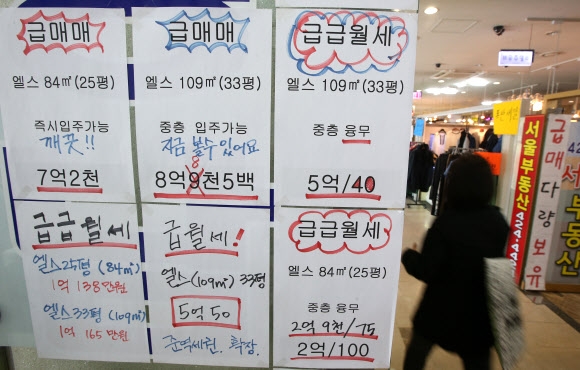 급매매
엘스 84㎡(25평)
즉시입주가능
깨끗!!
7억2천
급매매
엘스 109㎡(33평)
중층 입주가능
지금 볼수 있어요
8
8억9천5백
급급월세
엘스 109㎡(33평)
중층 융무
5억/40
급급월세
엘스25평(84㎡)
1억 138만원
엘스33평(109㎡)
1억 165만원
급월세!
엘스(109㎡) 33평
5억 50
준역세권. 확장.
급급월세
엘스 84㎡(25평)
중층 융무
2억9천/75
2억/100
서울부동산
급매다량보유